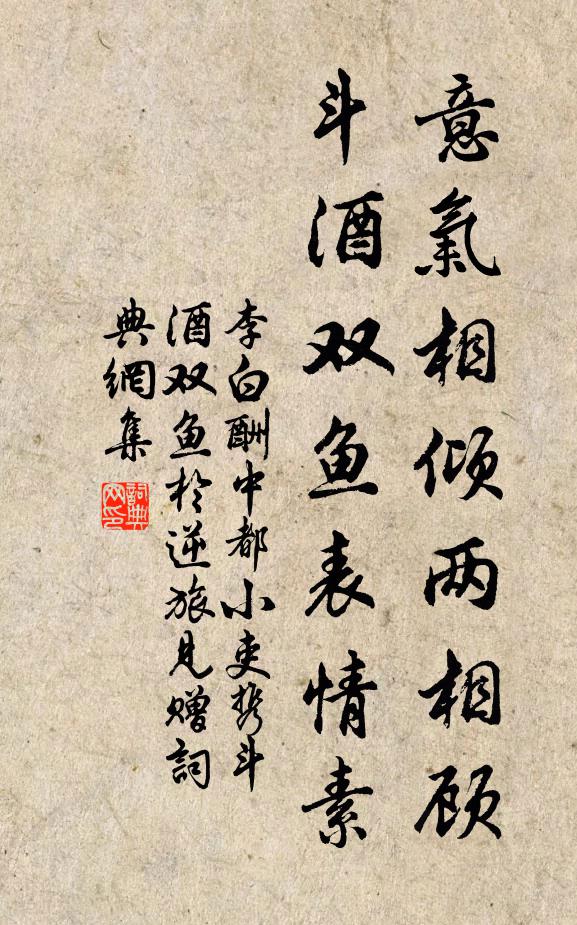 意氣相倾两相顾
斗酒双鱼表情素
李白酬中都小吏携斗
酒双鱼於逆旅見赠詞
典網集
詞典
网印